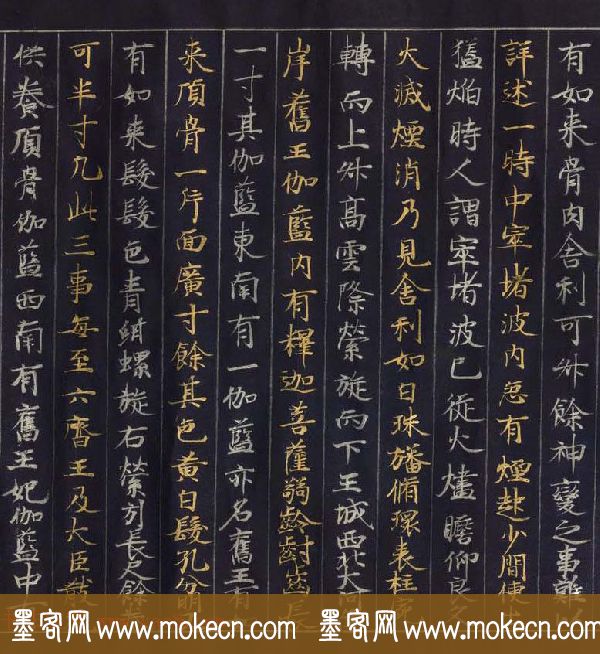 有如来骨肉舍利可升餘神變之事難以
詳述一時中窣堵波内忽有煙起少間便出
猛焰時人謂窣堵波已從火燼瞻仰良久
火滅煙消乃見舍利如白珠旛循環表柱宛
轉而上升高雲際縈旋而下王城西北大河
岸舊王伽藍内有釋迦菩薩弱齡齓齒長
一寸其伽藍東南有一伽藍亦名舊王有
来頂骨一片面廣寸餘其色黄白髮孔分明
有如来髮髮色青紺螺旋右縈引長尺餘
可半寸凡此三事每至六齋王及大臣散
供養頂骨伽藍西南有舊王妃伽藍中
墨客网 www.mokecn.com 墨客网 www.mokecn.com